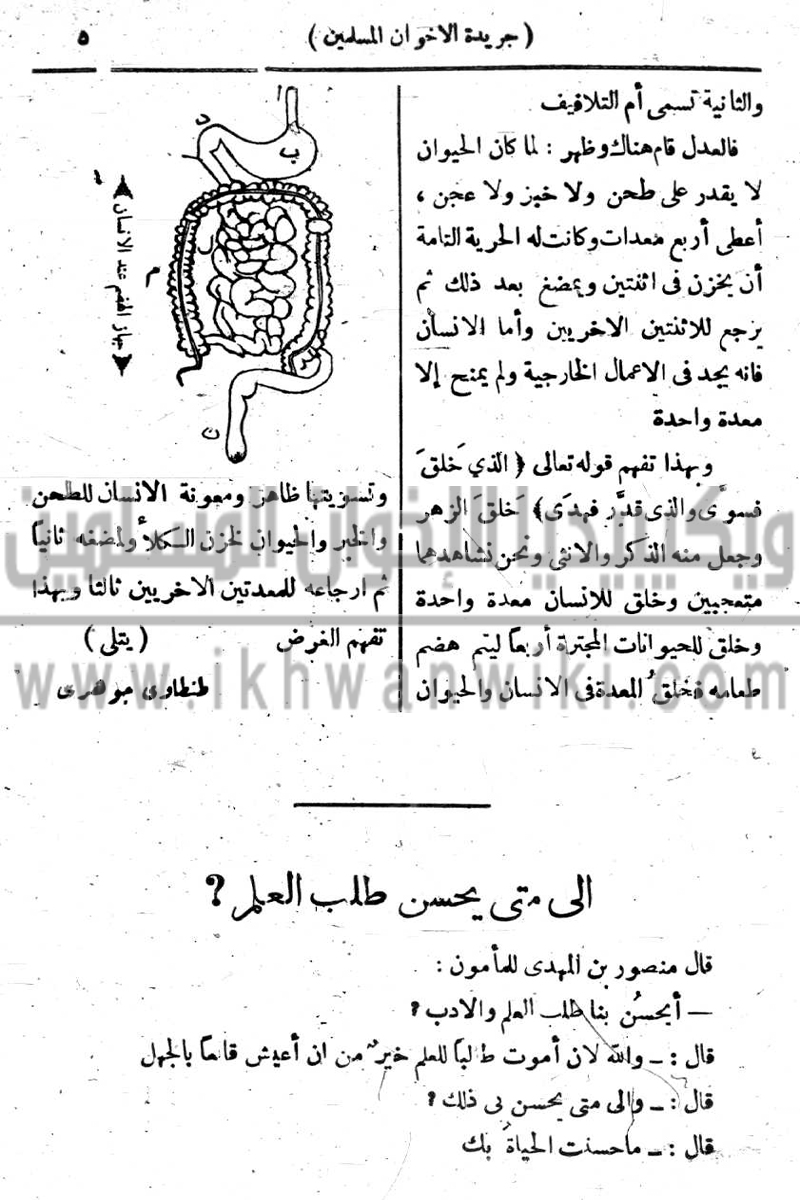 ( جريدة الاخوان المسلمين )
٥
والثانية تسمى أم التلافيف
فالعدل قام هناك وظهر : لما كان الحيوان
لا يقدر على طحن ولا خبز ولا عجن ،
أعطى أربع معدات وكانت له الحرية التامة
أن يخزن فى اثنتين ويمضغ بعد ذلك ثم
يرجع للاثنتين الاخريين وأما الانسان
فانه يجد فى الاعمال الخارجية ولم يمنح إلا
معدة واحدة
وبهذا تفهم قوله تعالى ( الذي خَلقَ
فسوَّى والذى قدَّر فهدَى) خَلقَ الزهر
وجعل منه الذكر والانثى ونحن نشاهدهما
متعجبين وخلق للانسان معدة واحدة
وخلق للحيوانات المجترة أربعاً ليتم هضم
طعامه فخلقُ المعدة فى الانسان والحيوان
ا
د
ب
م
ن
جهاز الهضم عند الانسان
وتسويتها ظاهر ومعونة الانسان للطحن
والخبز والحيوان لخزن الكلأ ولمضغه ثانياً
ثم ارجاعه للمعدتين الاخريين ثالثا وبهذا
تفهم الغرض ( يتلى )
طنطاوى جوهرى
ويكيبيديا الإخوان المسلمين
www.ikhwanwiki.com
الى متى يحسن طلب العلم ?
قال منصور بن المهدى للمأمون :
— أيحسُن بنا طلب العلم والادب ?
قال : ــ والله لان أموت طالباً للعلم خيرٌ من ان أعيش قانعاً بالجهل
قال : ــ والى متى يحسن بى ذلك ?
قال : ــ ماحسنت الحياةُ بك